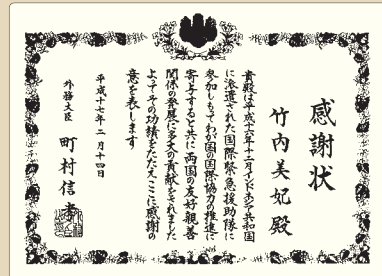 感謝状
竹内美妃殿
貴殿は平成十六年十二月インドネシア共和国
に派遣された国際緊急援助隊に
参加しもってわが国の国際協力の推進に
寄与すると共に両国の友好親善
関係の発展に多大の貢献をされました
よってその功績をたたえここに感謝の
意を表します
平成十七年二月十四日
外務大臣 町村信孝